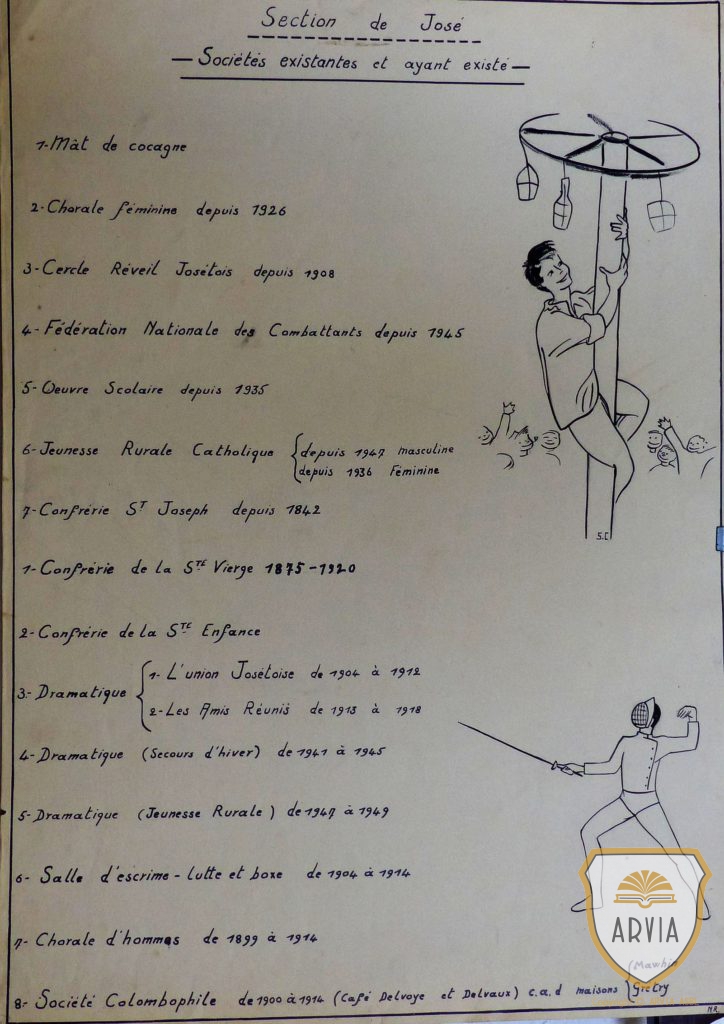 Section de José
- Sociétés existantes et ayant existé -
1- Mât de cocagne
2- Chorale féminine depuis 1926
3- Cercle Réveil Josétois depuis 1908
4- Fédération Nationale des Combattants depuis 1945
5- Oeuvre Scolaire depuis 1935
6- Jeunesse Rurale Catholique { depuis 1947 masculine
depuis 1936 Féminine
7- Confrérie St Joseph depuis 1842
S.C
1- Confrérie de la STE Vierge 1875-1920
2- Confrérie de la STE Enfance
3- Dramatique { 1- L'union Josétoise de 1904 à 1912
2- Les Amis Réunis de 1913 à 1918
4- Dramatique (Secours d'hiver) de 1941 à 1945
5- Dramatique (Jeunesse Rurale) de 1947 à 1949
6- Salle d'escrime - lutte et boxe de 1904 à 1914
7- Chorale d'hommes de 1899 à 1914
8- Société Colombophile de 1900 à 1914 (Café Delvoye et Delvaux) c.a.d maisons { Mawhin
Gietry
ARVIA
M.R.